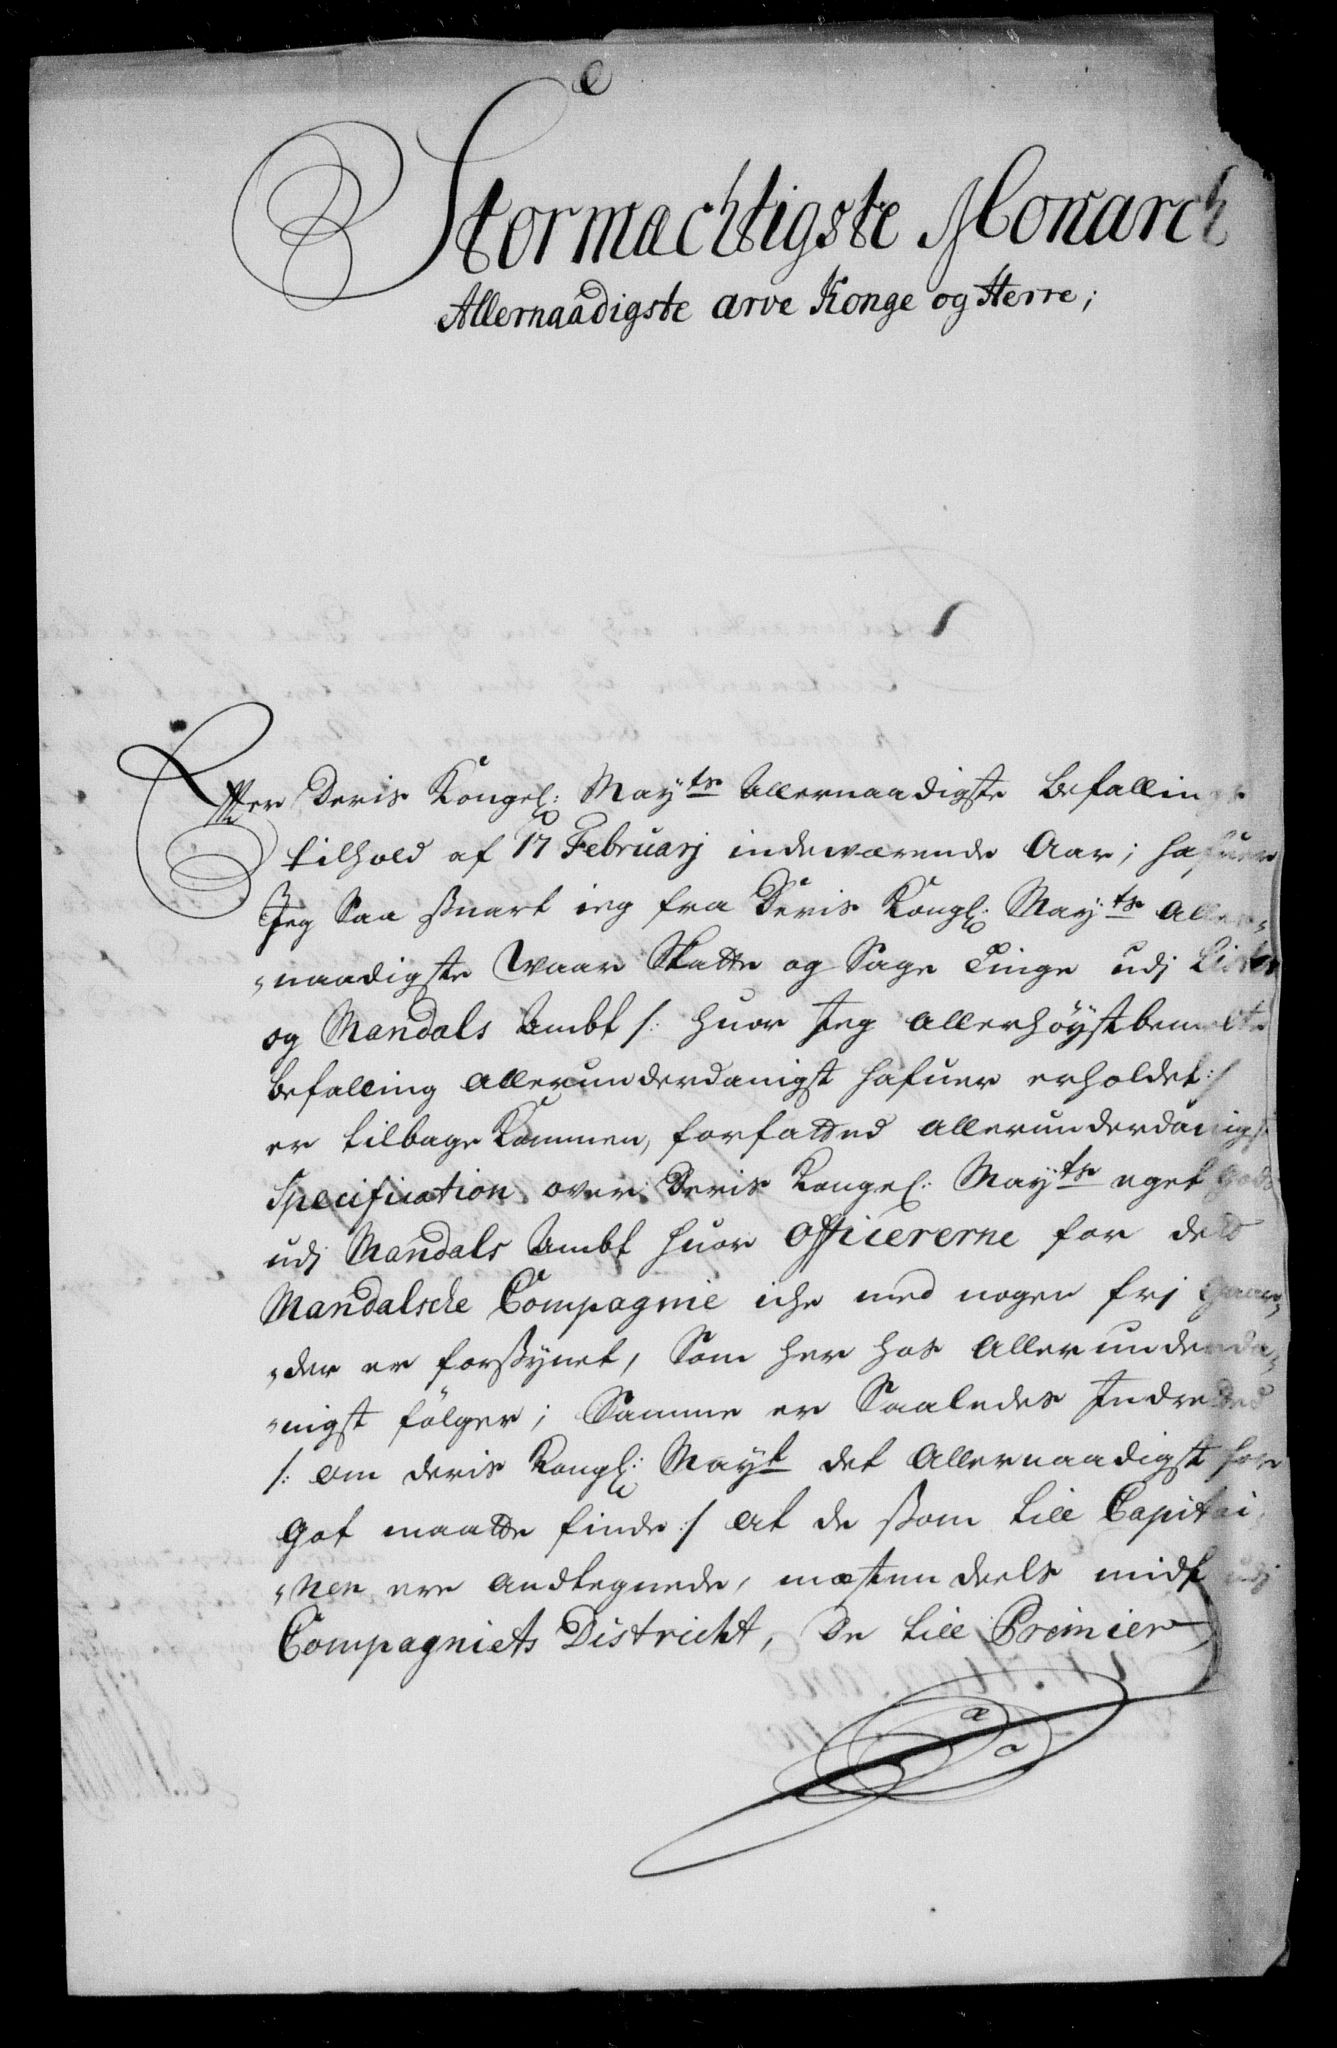 Stormæchtigste Monarch
Allernaadigste arve Konge og Herre;
Effter Deris Kongel: May:ts Allernaadigste befallings
tilhold af 17 Februarj indeværende Aar; hafuer
Jeg Saa snart ieg fra Deris Kongl: May:ts Aller-
naadigste Waar Skatte og Sage Tinge udj Lister
og Mandals Ambt /: huor Jeg allerhøystbemelte
befalling allerunderdanigst hafuer erholdet :/
er tilbage kommen, forfatted allerunderdanigst
Specification over Deris Kongel: May:ts eget Gods
udj Mandals Ambt huor Officererne for det
Mandalsche Compagnie iche med nogen frj Gaar-
der er forsynet, Som her hos allerunderda-
nigst følger; Samme er Saaledes Indretted
/: om Deris Kongl: May:t det Allernaadigst for
Got maatte finde :/ at de som till Capitai-
nen ere andtegnede, mæsten deels midt udj
Compagniets District, De till Premier